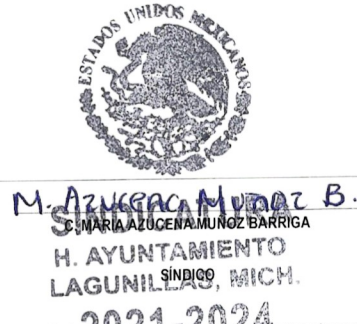 ESTADOS UNIDOS MEXICANOS
M. Azucena Muñoz B.
SINDICATURA
C. MARIA AZUCENA MUÑOZ BARRIGA
H. AYUNTAMIENTO
SÍNDICO
LAGUNILLAS, MICH.
2021-2024